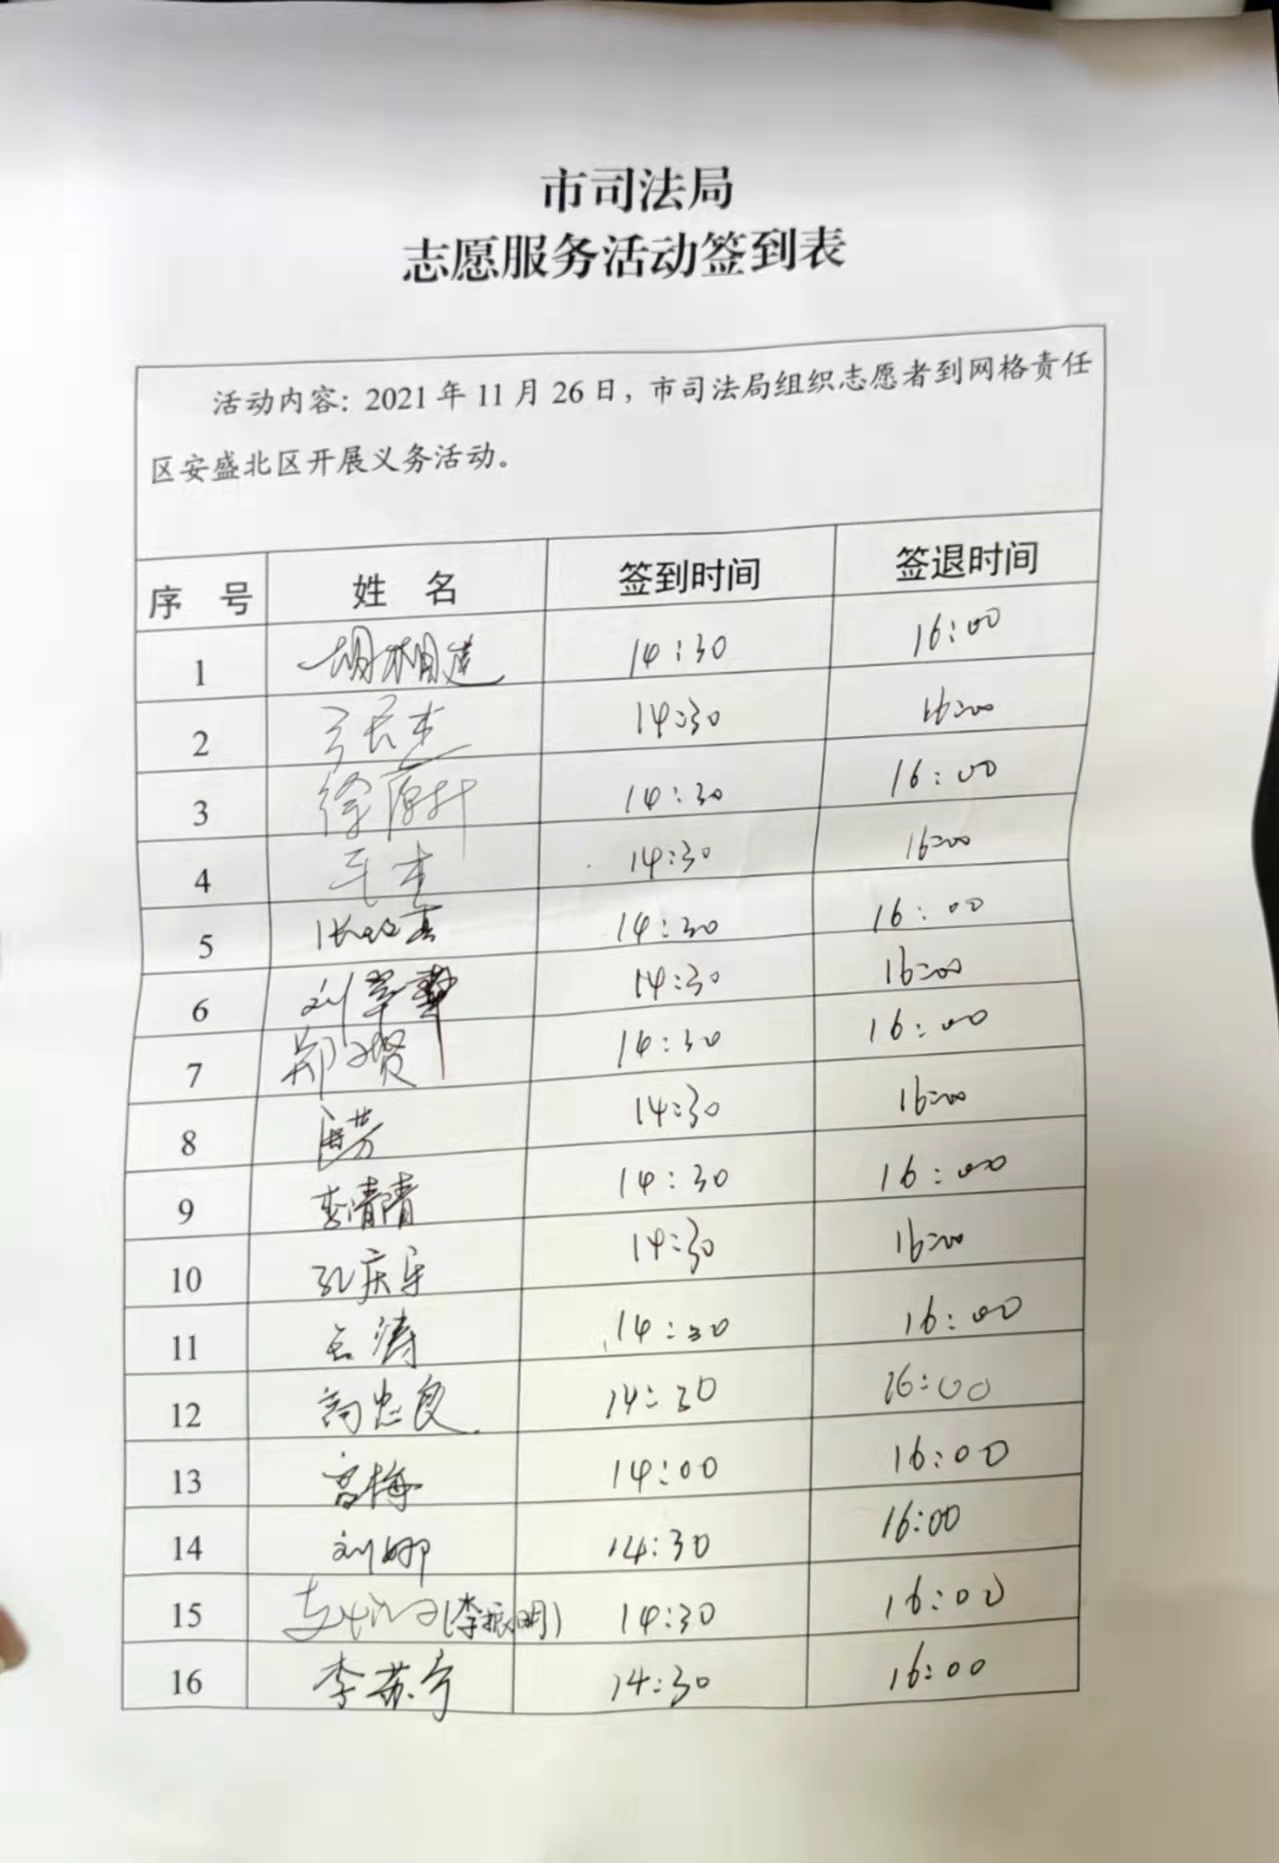 市司法局
志愿服务活动签到表
活动内容：2021年11月26日，市司法局组织志愿者到网格责任
区安盛北区开展义务活动。
序 号 姓 名 签到时间 签退时间
1 胡相道 14:30 16:00
2 14:30 16:00
3 徐 14:30 16:00
4 14:30 16:00
5 张 14:30 16:00
6 刘 14:30 16:00
7 郑 贤 14:30 16:00
8 芳 14:30 16:00
9 李清清 14:30 16:00
10 孔庆乐 14:30 16:00
11 涛 14:30 16:00
12 高忠良 14:30 16:00
13 高梅 14:00 16:00
14 刘娜 14:30 16:00
15 (李振明) 14:30 16:00
16 李苏宁 14:30 16:00